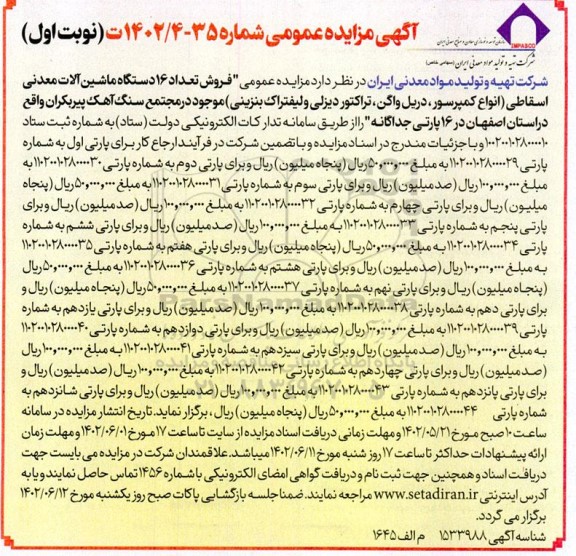 آگهی مزایده عمومی شماره ۳۵-۱۴۰۲/۴ت (نوبت اول)
IMPASCO
شرکت تهیه و تولید مواد معدنی ایران (سهامی خاص)
شرکت تهیه و تولید مواد معدنی ایران در نظر دارد مزایده عمومی "فروش تعداد ۱۶ دستگاه ماشین آلات معدنی
اسقاطی (انواع کمپرسور، دریل واگن، تراکتور دیزلی و لیفتراک بنزینی) موجود در مجتمع سنگ آهک پیربکران واقع
در استان اصفهان در ۱۶ پارتی جداگانه" را از طریق سامانه تدارکات الکترونیکی دولت (ستاد) به شماره ثبت ستاد
۱۰۰۲۰۰۱۰۲۸۰۰۰۰۱۰ و با جزئیات مندرج در اسناد مزایده و با تضمین شرکت در فرآیند ارجاع کار برای پارتی اول به شماره
پارتی ۱۱۰۲۰۰۱۰۲۸۰۰۰۰۲۹ به مبلغ ۵۰,۰۰۰,۰۰۰ ریال (پنجاه میلیون) ریال و برای پارتی دوم به شماره پارتی ۱۱۰۲۰۰۱۰۲۸۰۰۰۰۳۰ به
مبلغ ۱۰۰,۰۰۰,۰۰۰ ریال (صد میلیون) ریال و برای پارتی سوم به شماره پارتی ۱۱۰۲۰۰۱۰۲۸۰۰۰۰۳۱ به مبلغ ۵۰,۰۰۰,۰۰۰ ریال (پنجاه
میلیون) ریال و برای پارتی چهارم به شماره پارتی ۱۱۰۲۰۰۱۰۲۸۰۰۰۰۳۲ به مبلغ ۱۰۰,۰۰۰,۰۰۰ ریال (صد میلیون) ریال و برای
پارتی پنجم به شماره پارتی ۱۱۰۲۰۰۱۰۲۸۰۰۰۰۳۳ به مبلغ ۱۰۰,۰۰۰,۰۰۰ ریال (صد میلیون) ریال و برای پارتی ششم به شماره
پارتی ۱۱۰۲۰۰۱۰۲۸۰۰۰۰۳۴ به مبلغ ۵۰,۰۰۰,۰۰۰ ریال (پنجاه میلیون) ریال و برای پارتی هفتم به شماره پارتی ۱۱۰۲۰۰۱۰۲۸۰۰۰۰۳۵
به مبلغ ۱۰۰,۰۰۰,۰۰۰ ریال (صد میلیون) ریال و برای پارتی هشتم به شماره پارتی ۱۱۰۲۰۰۱۰۲۸۰۰۰۰۳۶ به مبلغ ۵۰,۰۰۰,۰۰۰ ریال
(پنجاه میلیون) ریال و برای پارتی نهم به شماره پارتی ۱۱۰۲۰۰۱۰۲۸۰۰۰۰۳۷ به مبلغ ۵۰,۰۰۰,۰۰۰ ریال (پنجاه میلیون) ریال و
برای پارتی دهم به شماره پارتی ۱۱۰۲۰۰۱۰۲۸۰۰۰۰۳۸ به مبلغ ۱۰۰,۰۰۰,۰۰۰ ریال (صد میلیون) ریال و برای پارتی یازدهم به شماره
پارتی ۱۱۰۲۰۰۱۰۲۸۰۰۰۰۳۹ به مبلغ ۱۰۰,۰۰۰,۰۰۰ ریال (صد میلیون) ریال و برای پارتی دوازدهم به شماره پارتی ۱۱۰۲۰۰۱۰۲۸۰۰۰۰۴۰
به مبلغ ۱۰۰,۰۰۰,۰۰۰ ریال (صد میلیون) ریال و برای پارتی سیزدهم به شماره پارتی ۱۱۰۲۰۰۱۰۲۸۰۰۰۰۴۱ به مبلغ ۱۰۰,۰۰۰,۰۰۰ ریال
(صد میلیون) ریال و برای پارتی چهاردهم به شماره پارتی ۱۱۰۲۰۰۱۰۲۸۰۰۰۰۴۲ به مبلغ ۱۰۰,۰۰۰,۰۰۰ ریال (صد میلیون) ریال و
برای پارتی پانزدهم به شماره پارتی ۱۱۰۲۰۰۱۰۲۸۰۰۰۰۴۳ به مبلغ ۱۰۰,۰۰۰,۰۰۰ ریال (صد میلیون) ریال و برای پارتی شانزدهم به
شماره پارتی ۱۱۰۲۰۰۱۰۲۸۰۰۰۰۴۴ به مبلغ ۵۰,۰۰۰,۰۰۰ ریال (پنجاه میلیون) ریال، برگزار نماید. تاریخ انتشار مزایده در سامانه
ساعت ۱۰ صبح مورخ ۱۴۰۲/۰۵/۲۱ و مهلت زمانی دریافت اسناد مزایده از سایت تا ساعت ۱۷ مورخ ۱۴۰۲/۰۶/۰۱ و مهلت زمان
ارائه پیشنهادات حداکثر تا ساعت ۱۷ روز شنبه مورخ ۱۴۰۲/۰۶/۱۱ میباشد. علاقمندان شرکت در مزایده می بایست جهت
دریافت اسناد و همچنین جهت ثبت نام و دریافت گواهی امضای الکترونیکی با شماره ۱۴۵۶ تماس حاصل نمایند و یا به
آدرس اینترنتی www.setadiran.ir مراجعه نمایند. ضمنا جلسه بازگشایی پاکات صبح روز یکشنبه مورخ ۱۴۰۲/۰۶/۱۲
برگزار می گردد.
شناسه آگهی ۱۵۳۳۹۸۸ م الف ۱۶۴۵